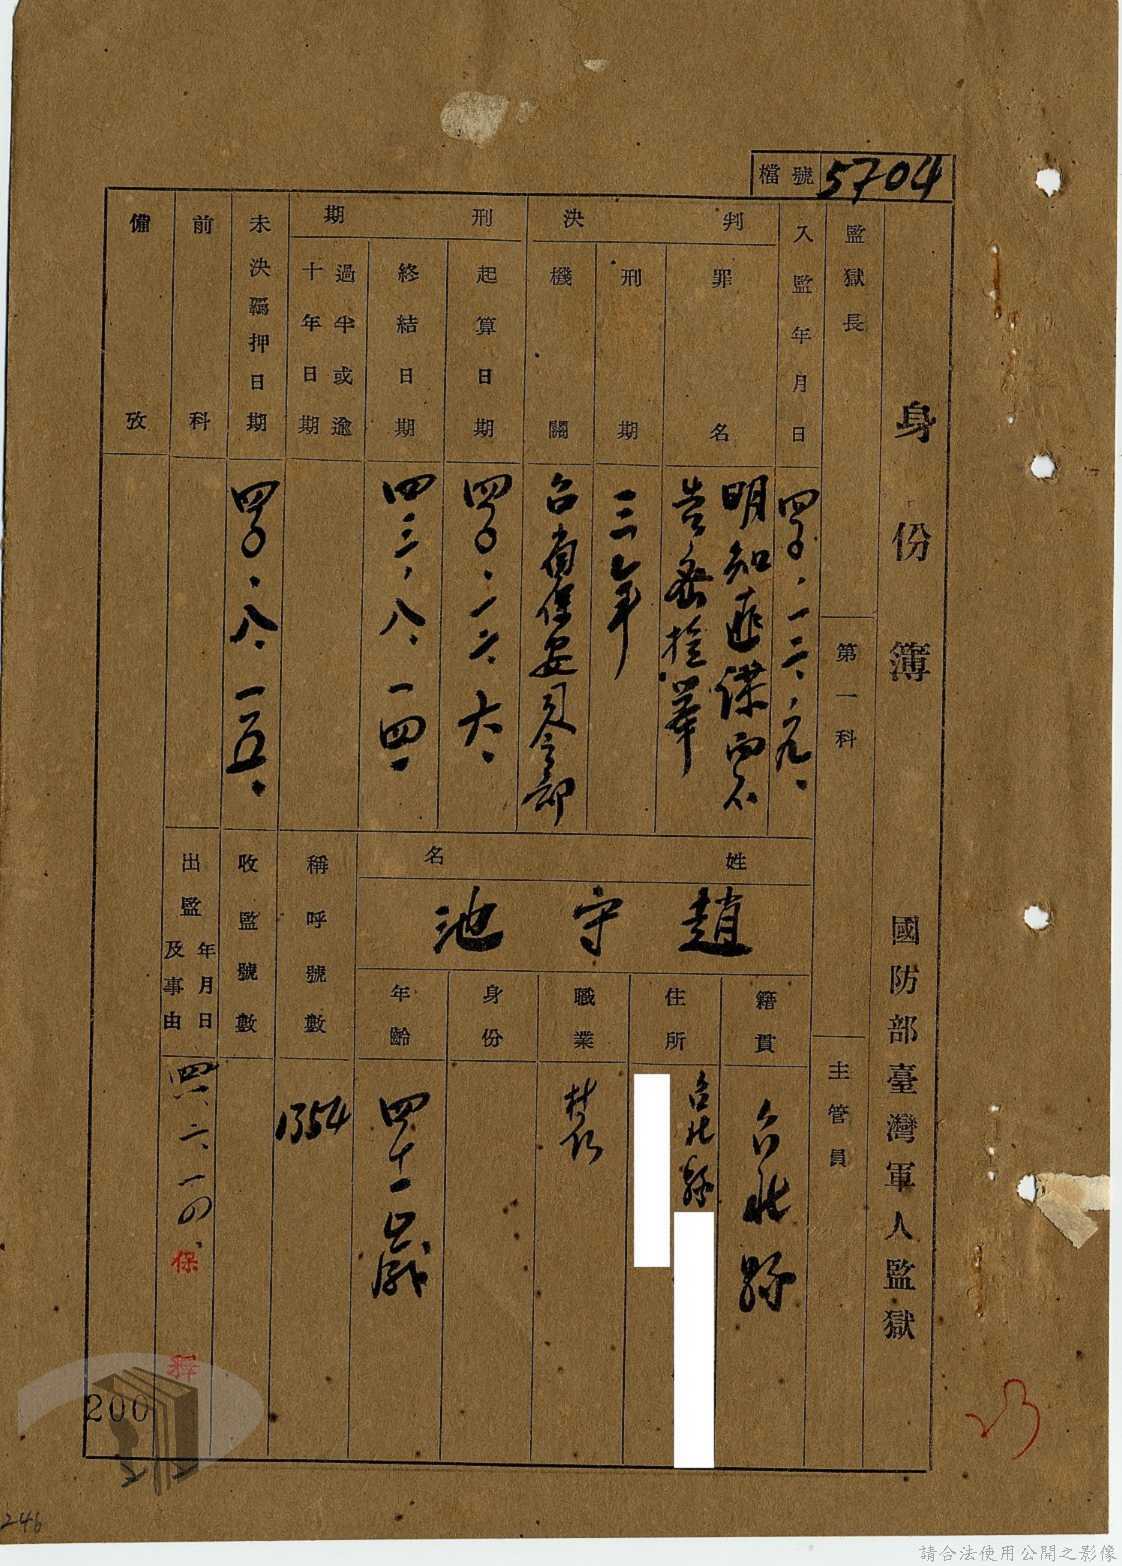 檔號 5704
身份簿 國防部臺灣軍人監獄
監獄長
第一科
主管員
入監年月日
四〇、一二、九、
判決
罪名
明知匪諜而不
告密檢舉
刑期
三年
機關
台灣保安司令部
刑期
起算日期
四〇、一二、六、
終結日期
四三、八、一四、
過半或逾
十年日期
未決羈押日期
四〇、八、一五、
前科
備攷
姓名
趙守池
籍貫
台北縣
住所
台北縣
職業
村長
身份
年齡
四十一歲
稱呼號數
1354
收監號數
出監年月日
及事由
四六、二、一四、
保釋
200
23
246
請合法使用公開之影像